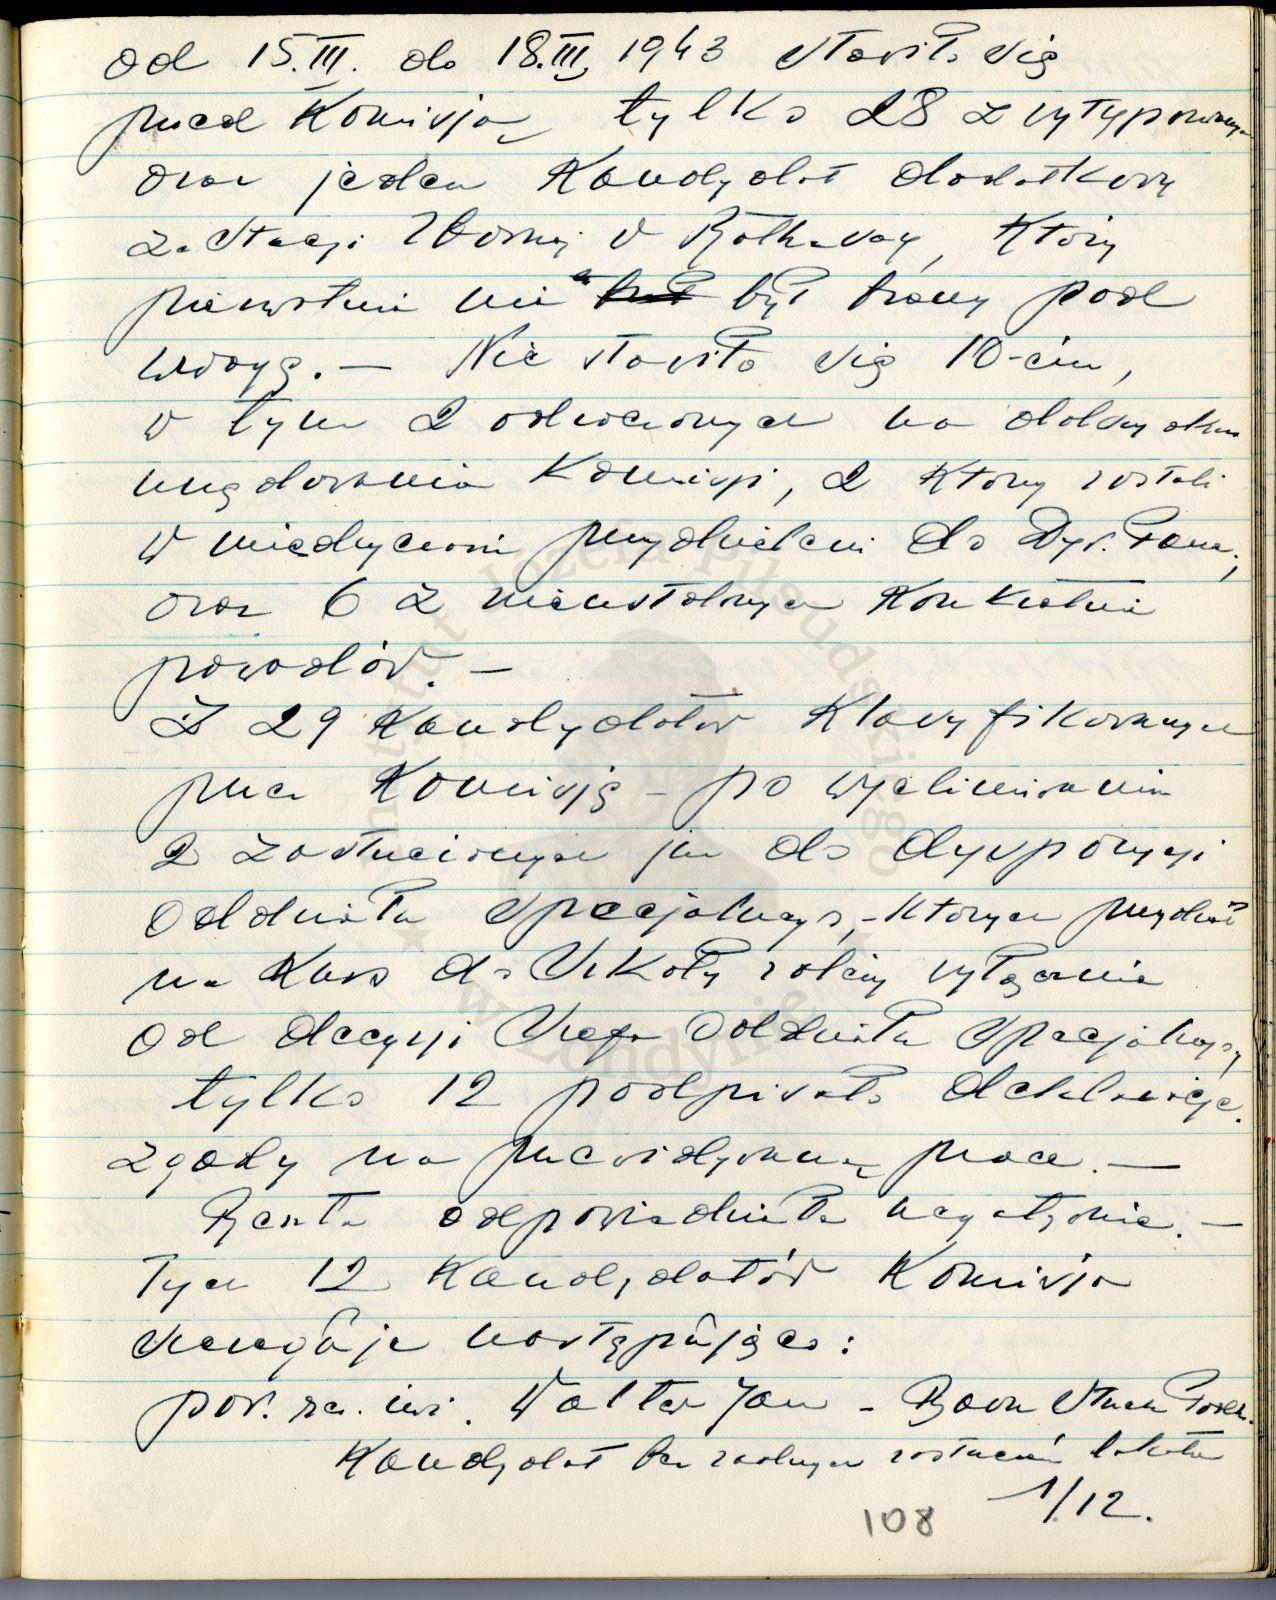 od 15.III. do 18.III. 1943 stawiło się
przed Komisją tylko 28 z wytypowanych
oraz jeden kandydat dodatkowy
ze Stacji Zbornej w Rothesay, który
pierwotnie nie był brany pod
uwagę. — Nie stawiło się 10-ciu,
w tym 2 odwołanych na
urzędowania Komisji, 2 którzy zostali
w międzyczasie przydzieleni do Dyw. Panc.,
oraz 6 z nieustalonych konkretnie
powodów. —
Z 29 kandydatów klasyfikowanych
przez Komisję - po wyeliminowaniu
2 zastrzeżonych już do dyspozycji
Oddziału Specjalnego, - których przydział
na kurs do Szkoły zależy wyłącznie
od decyzji Szefa Oddziału Specjalnego,
tylko 12 podpisało deklarację
zgody na przewidywaną pracę. —
Reszta odpowiedziała negatywnie. —
Tych 12 kandydatów Komisja
szereguje następująco:
por. rez. inż. Walter Jan - Baon Strzel. Podh.
Kandydat bez żadnych zastrzeżeń lokata
1/12.
108
Instytut Józefa Piłsudskiego
w Londynie